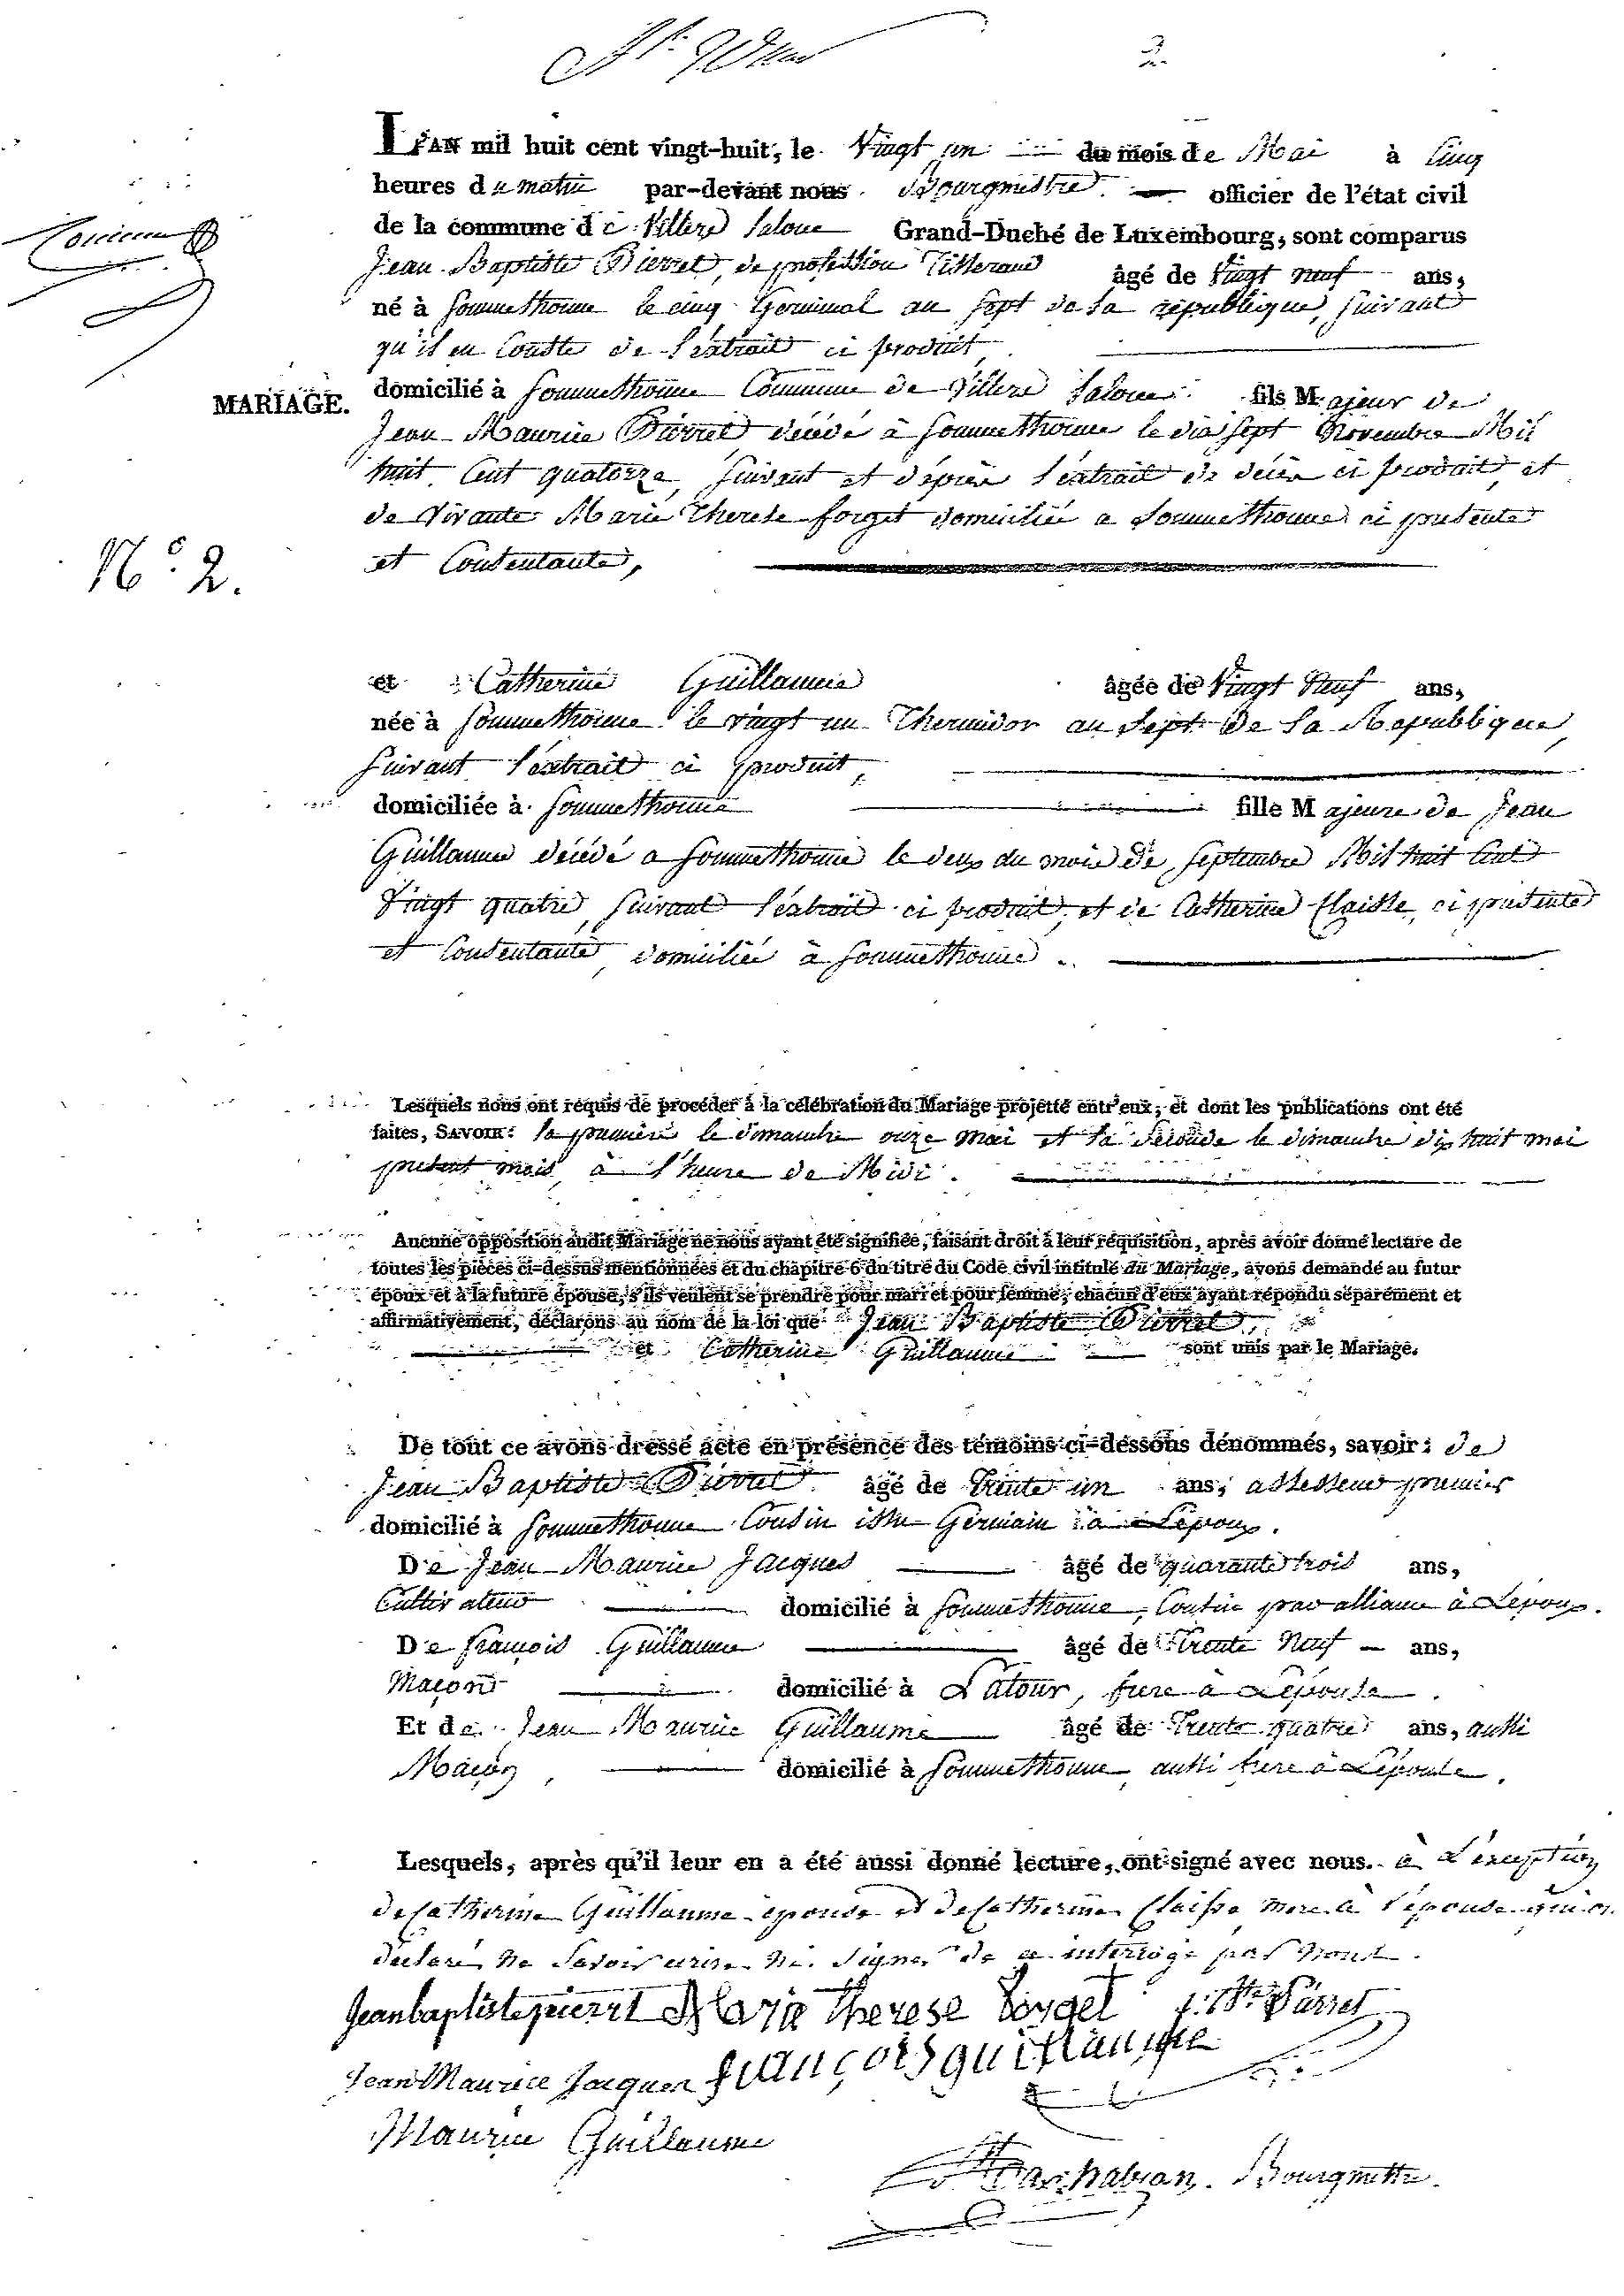 2
L'AN mil huit cent vingt-huit, le Vingt un du mois de Mai à Cinq
heures du matin par-devant nous Bourgmestre officier de l'état civil
de la commune de Villers Laloue Grand-Duché de Luxembourg, sont comparus
Jean Baptiste Pierret, de profession Tisserand âgé de Vingt neuf ans,
né à Sommethonne le cinq Germinal an sept de la république, suivant
qu'il en Conste de l'extrait ci produit,
MARIAGE.
domicilié à Sommethonne Commune de Villers Laloue fils Majeur de
Jean Maurice Pierret décédé à Sommethonne le dix sept Novembre Mil
huit Cent quatorze, suivant et d'après l'extrait de décès ci produit, et
de Vivante Marie Therese forget domiciliée a Sommethonne ci presente
et Consentante,
N.º 2.
et Catherine Guillaume âgée de Vingt Neuf ans,
née à Sommethonne le vingt un Thermidor an Sept de la Republique,
suivant l'extrait ci produit,
domiciliée à Sommethonne fille Majeure de Jean
Guillaume décédé a Sommethonne le deux du mois de Septembre Mil huit Cent
Vingt quatre, suivant l'extrait ci produit, et de Catherine Claisse, ci presente
et Consentante, domiciliée à Sommethonne.
Lesquels nous ont requis de procéder à la célébration du Mariage projetté entr'eux, et dont les publications ont été
faites, SAVOIR: la premiere le dimanche onze mai et la Seconde le dimanche dix huit mai
present mois, à l'heure de Midi.
Aucune opposition audit Mariage ne nous ayant été signifiée, faisant droit à leur réquisition, après avoir donné lecture de
toutes les pièces ci-dessus mentionnées et du chapitre 6 du titre du Code civil intitulé du Mariage, avons demandé au futur
époux et à la future épouse, s'ils veulent se prendre pour mari et pour femme; chacun d'eux ayant répondu séparément et
affirmativement, déclarons au nom de la loi que Jean Baptiste Pierret,
et Catherine Guillaume sont unis par le Mariage.
De tout ce avons dressé acte en présence des témoins ci-dessous dénommés, savoir: de
Jean Baptiste Pierret âgé de Trente un ans, assesseur premier
domicilié à Sommethonne Cousin issu Germain à L'époux.
De Jean Maurice Jacques âgé de quarante trois ans,
Cultivateur domicilié à Sommethonne, Cousin par alliance à L'époux.
De françois Guillaume âgé de Trente Neuf ans,
Maçon domicilié à Latour, frere à L'épouse.
Et de Jean Maurice Guillaume âgé de Trente quatre ans, aussi
Maçon, domicilié à Sommethonne, aussi frere à L'épouse.
Lesquels, après qu'il leur en a été aussi donné lecture, ont signé avec nous. à L'exception
de Catherine Guillaume épouse et de Catherine Claisse mere à l'épouse qui on
déclaré ne Savoir écrire ni Signer de ce interrogé par nous.
Jean baptiste pierret Maria Therese forget J: Bte Pierret
Jean Maurice Jacques françois guillaume
Maurice Guillaume
Bourgmestre.